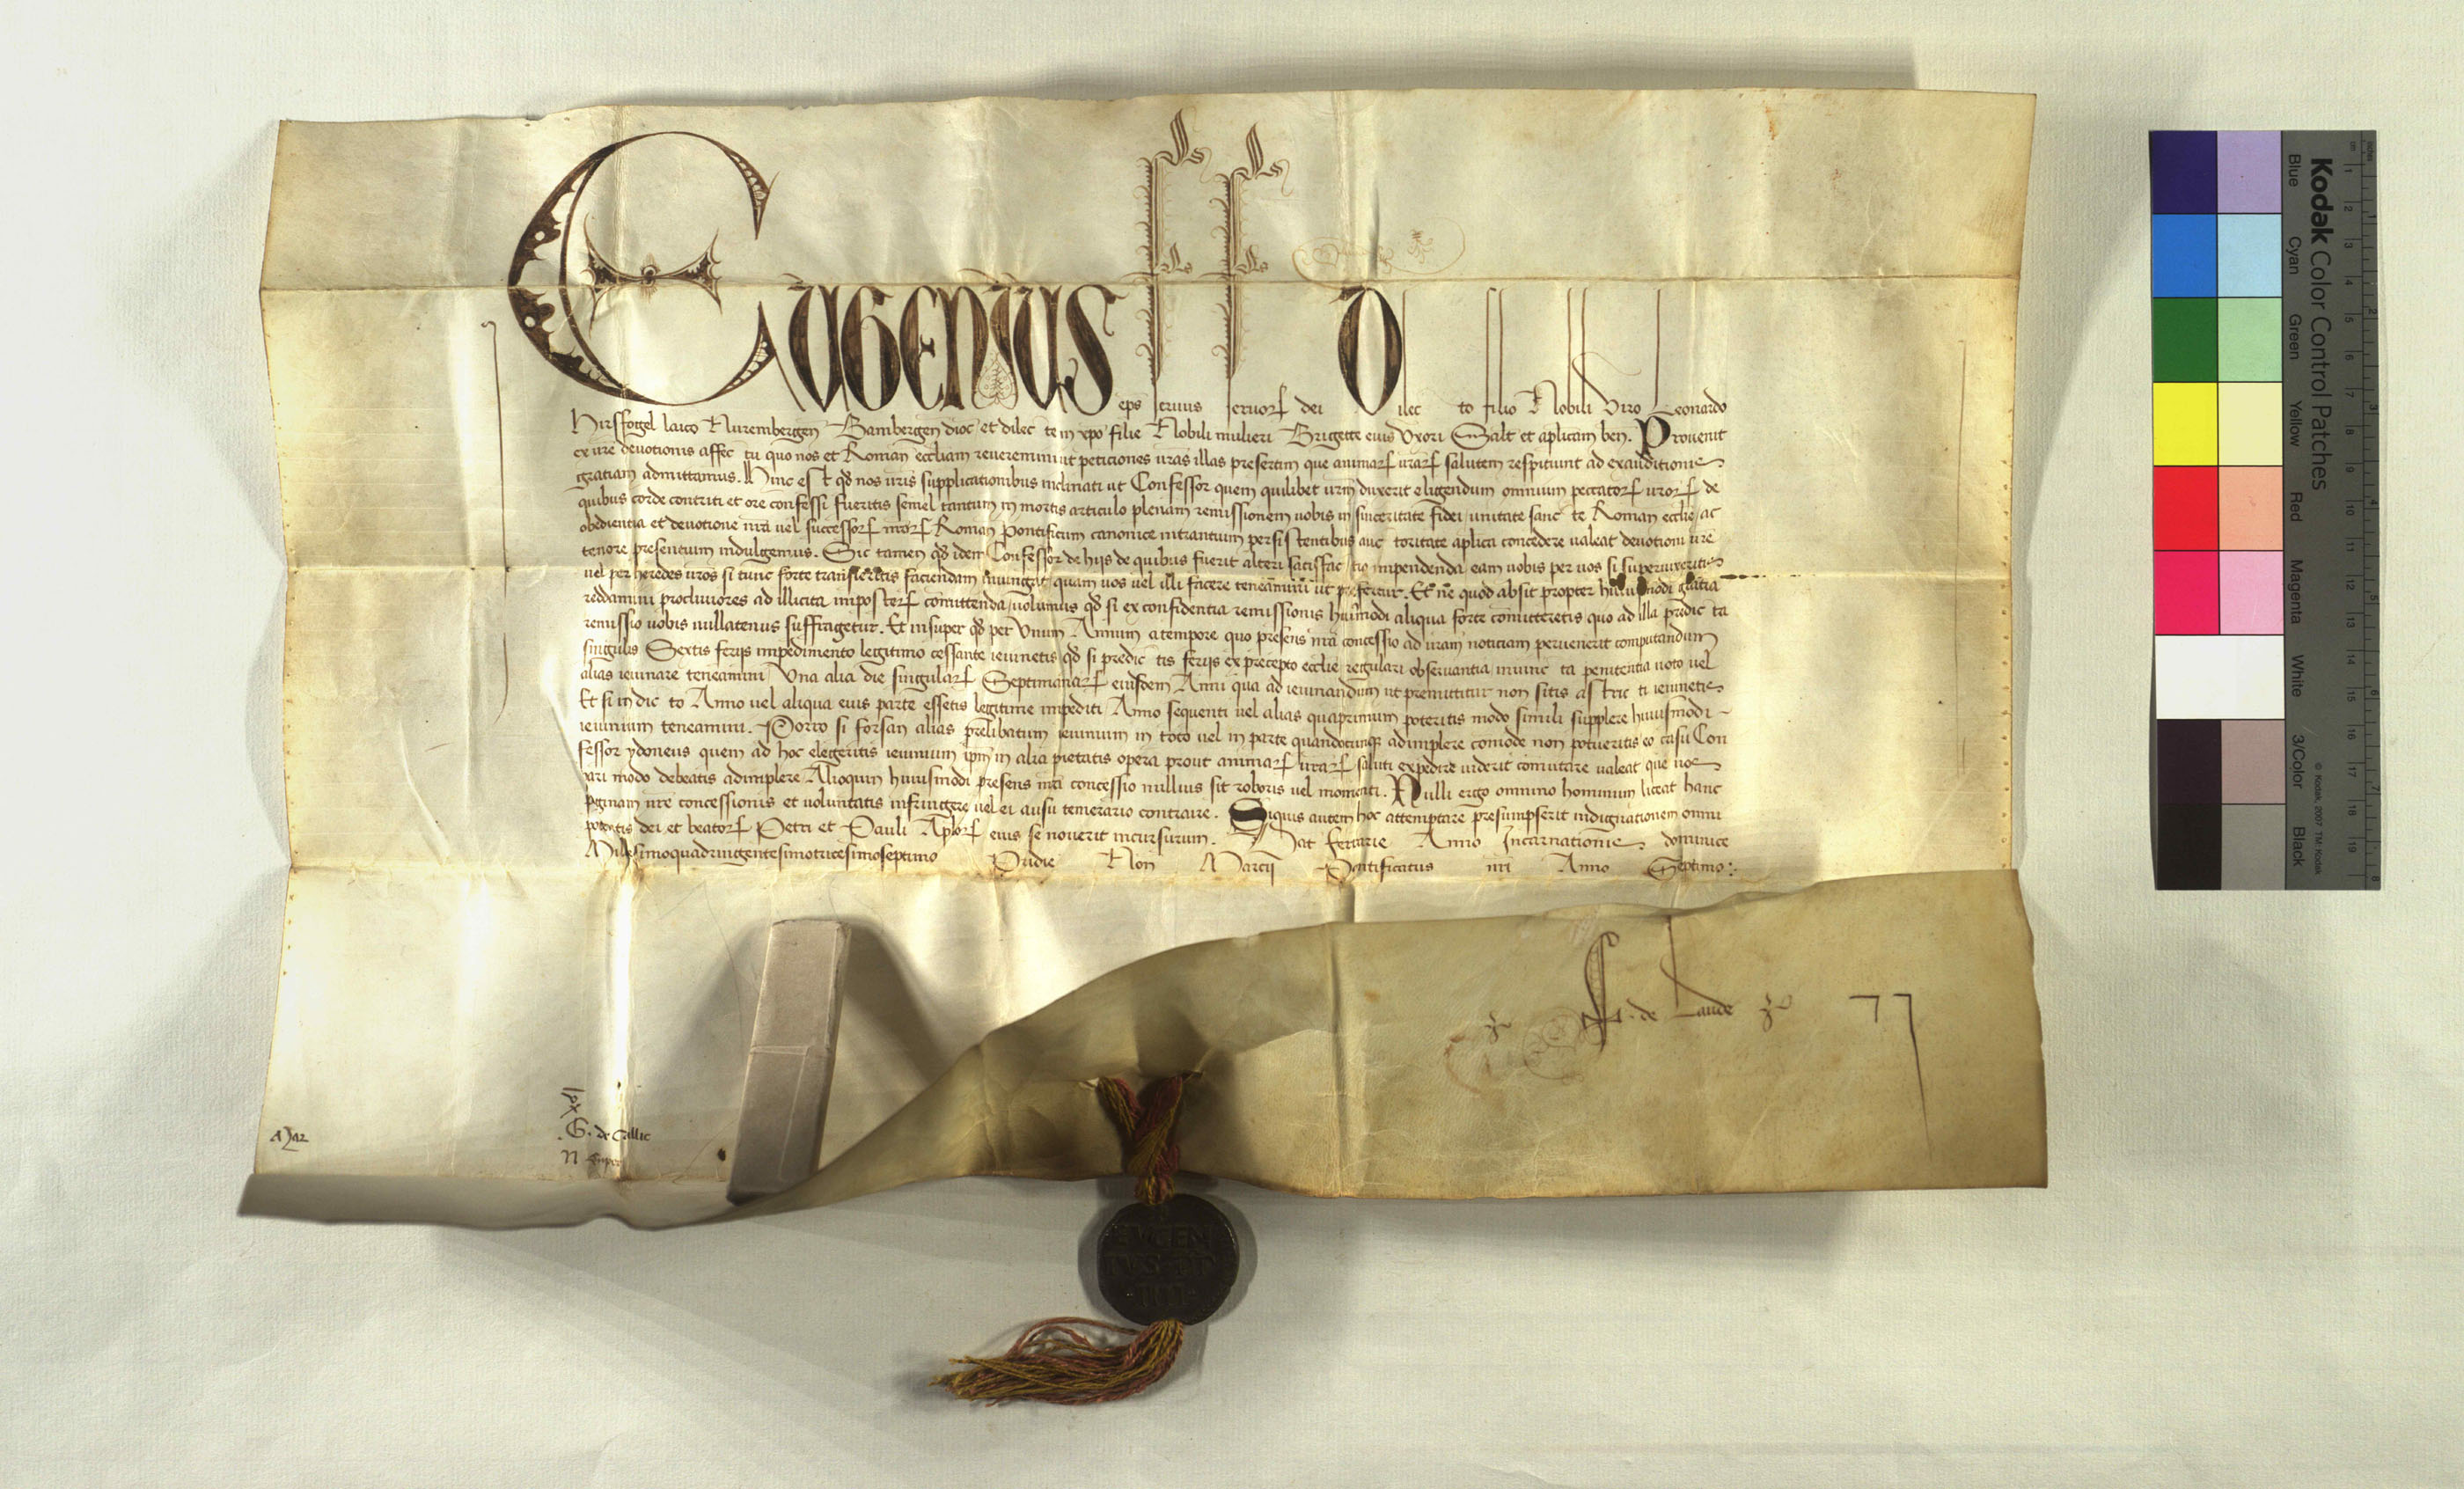 Eugenius eps seruus seruoꝝ dei Dilecto filio Nobili Viro Leonardo
Hirsfogel laico Nurembergen Bambergen dioc et dilecte in xpo filie Nobili mulieri Brigette eius Vxori Salt et aplicam ben. Prouenit
ex ure deuotionis affectu quo nos et Roman eccliam reueremini ut peticiones uras illas presertim que animaꝝ uraꝝ salutem respitiunt ad exauditionis
gratiam admittamus. Hinc est qd nos uris supplicationibus inclinati ut Confessor quem quilibet urm duxerit eligendum omnium peccatoꝝ uroꝝ de
quibus corde contriti et ore confessi fueritis semel tantum in mortis articulo plenam remissionem uobis in sinceritate fidei unitate sancte Roman ecclie ac
obedientia et deuotione nra uel successoꝝ nroꝝ Roman Pontificum canonice intrantium persistentibus auctoritate aplica concedere ualeat deuotioni ure
tenore presentium indulgemus. Sic tamen qd idem Confessor de hijs de quibus fuerit alteri satisfactio impendenda eam uobis per uos si superuixeritis
uel per heredes uros si tunc forte transieritis faciendam iniungat quam uos uel illi facere teneamini ut prefertur. Et ne quod absit propter huiusmodi gratia
reddamini procliuiores ad illicita imposteꝝ comittenda uolumus qd si ex confidentia remissionis huiusmodi aliqua forte comitteretis quo ad illa predicta
remissio uobis nullatenus suffragetur. Et insuper qd per Vnum Annum a tempore quo presens nra concessio ad uram noticiam peruenerit computandum
singulis Sextis ferijs impedimento legitimo cessante ieiunetis qd si predictis ferijs ex precepto ecclie regulari obseruantia iniuncta penitentia uoto uel
alias ieiunare teneamini Vna alia die singulaꝝ Septimanaꝝ eiusdem Anni qua ad ieiunandum ut premittitur non sitis astricti ieiunetis
Et si in dicto Anno uel aliqua eius parte essetis legitime impediti Anno sequenti uel alias quamprimum poteritis modo simili supplere huiusmodi
ieiunium teneamini. Porro si forsan alias prelibatum ieiunium in toto uel in parte quandocunqꝫ adimplere comode non potueritis eo casu Con
fessor ydoneus quem ad hoc elegeritis ieiunium ipm in alia pietatis opera prout animaꝝ uraꝝ saluti expedire uiderit comutare ualeat que uos
pari modo debeatis adimplere Alioquin huiusmodi presens nra concessio nullius sit roboris uel momenti. Nulli ergo omnino hominum liceat hanc
paginam nre concessionis et uoluntatis infringere uel ei ausu temerario contraire. Siquis autem hoc attemptare presumpserit indignationem omni
potentis dei et beatoꝝ Petri et Pauli Aploꝝ eius se nouerit incursurum. Dat Ferrarie Anno Incarnationis dominice
Millesimoquadringentesimotricesimoseptimo Pridie Non Marcij Pontificatus nri Anno Septimo:
de Laude
G. de Callic
EVGEN
IVS·PP
IIII
Kodak Color Control Patches
Blue Cyan Green Yellow Red Magenta White 3/Color Black
© Kodak, 2007 TM: Kodak